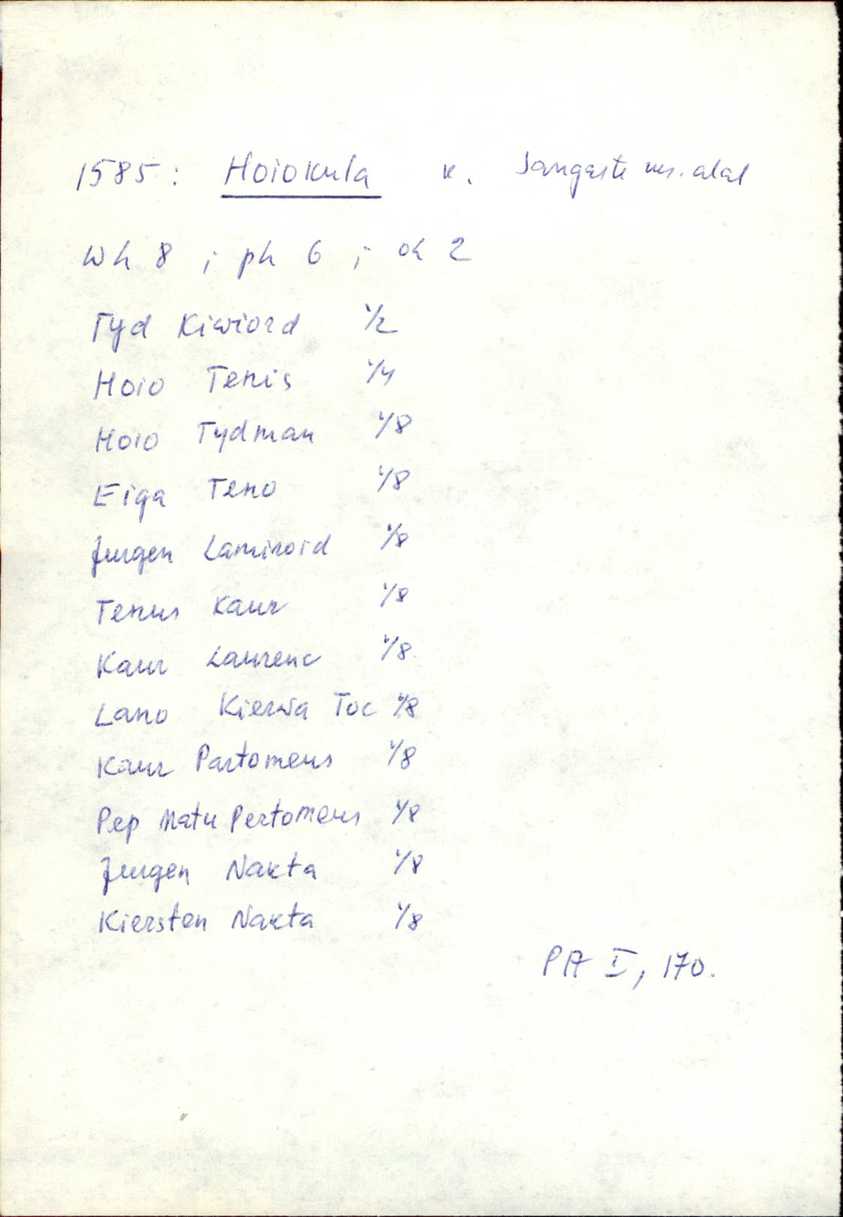 1585: Hoiokula k. Sangaste ms. alal
Wh 8 ; ph 6 ; oh 2
Tyd Kiwiord 1/2
Hoio Tenis 1/4
Hoio Tydman 1/8
Eiga Teno 1/8
Jurgen 1/8
Tenus Kaur 1/8
Kaur Laurenc 1/8
Lano Kierwa Toc 1/8
Kaur Partomeus 1/8
Pep Matu Pertomeus 1/8
Jurgen Nakta 1/8
Kiersten Nakta 1/8
PA I, 170.